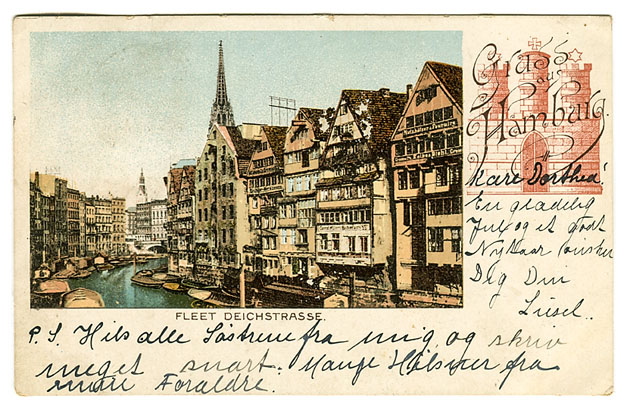 Gruss
aus
Hamburg.
Kære Dorthea!
En glædelig
Jul og et godt
Nytaar ønsker
Dig Din
Lusel..
FLEET DEICHSTRASSE.
P.S. Hils alle Søstrene fra mig og skriv
meget snart. Mange Hilsner fra
mine Forældre.